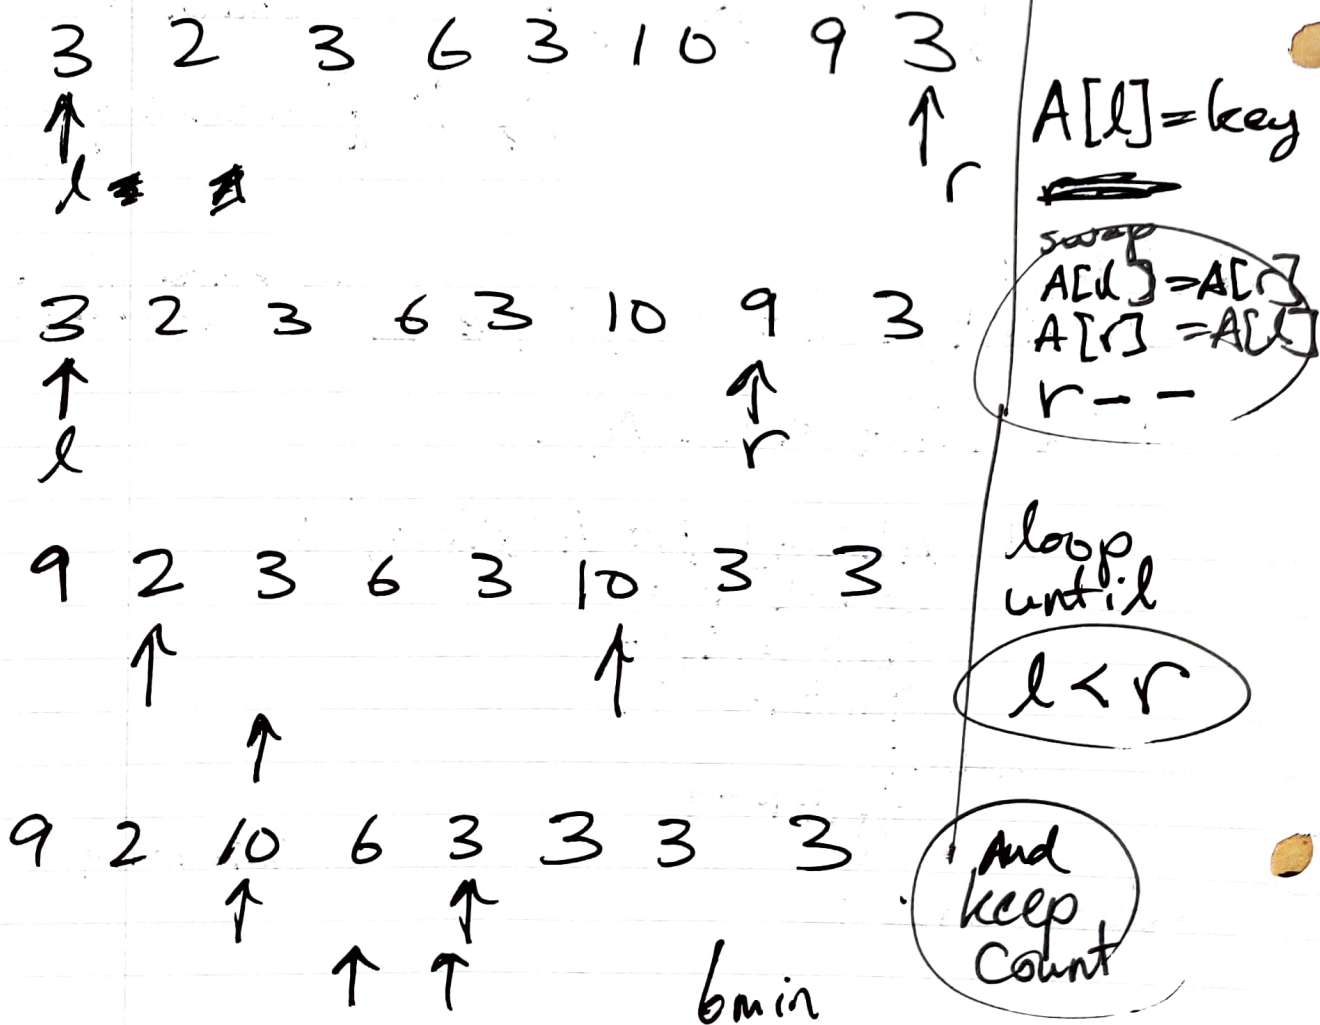 3 2 3 6 3 10 9 3
l r
3 2 3 6 3 10 9 3
l r
9 2 3 6 3 10 3 3
9 2 10 6 3 3 3 3
6min
A[l]=key
swap
A[l]=A[r]
A[r]=A[l]
r--
loop
until
l<r
And
keep
count